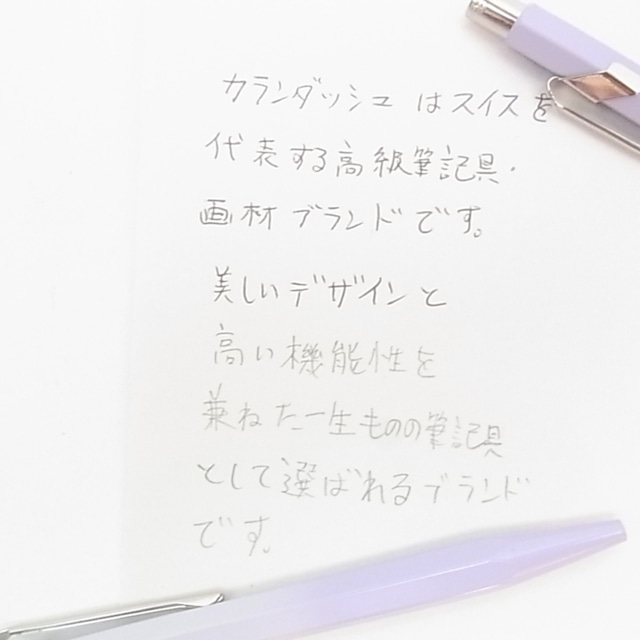 カランダッシュはスイスを
代表する高級筆記具・
画材ブランドです。
美しいデザインと
高い機能性を
兼ねた一生ものの筆記具
として選ばれるブランド
です。